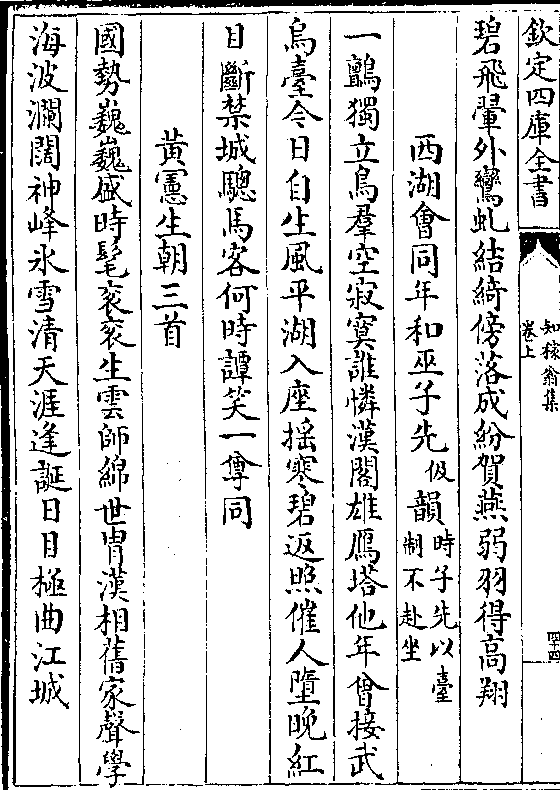 欽定四庫全書
知稼翁集
卷上
四十四
碧飛翬外鸞虬結綺傍落成紛賀燕弱羽得高翔
西湖會同年和巫子先伋韻時子先以臺制不赴坐
一鸇獨立鳥羣空寂寞誰憐漢閣雄鴈塔他年曾接武
烏臺今日自生風平湖入座揺寒碧返照催人墮晩紅
目斷禁城驄馬客何時譚笑一尊同
黄憲生朝三首
國勢巍巍盛時髦衮衮生雲師綿世胄漢相舊家聲學
海波瀾闊神峰氷雪清天涯逢誕日目極曲江城